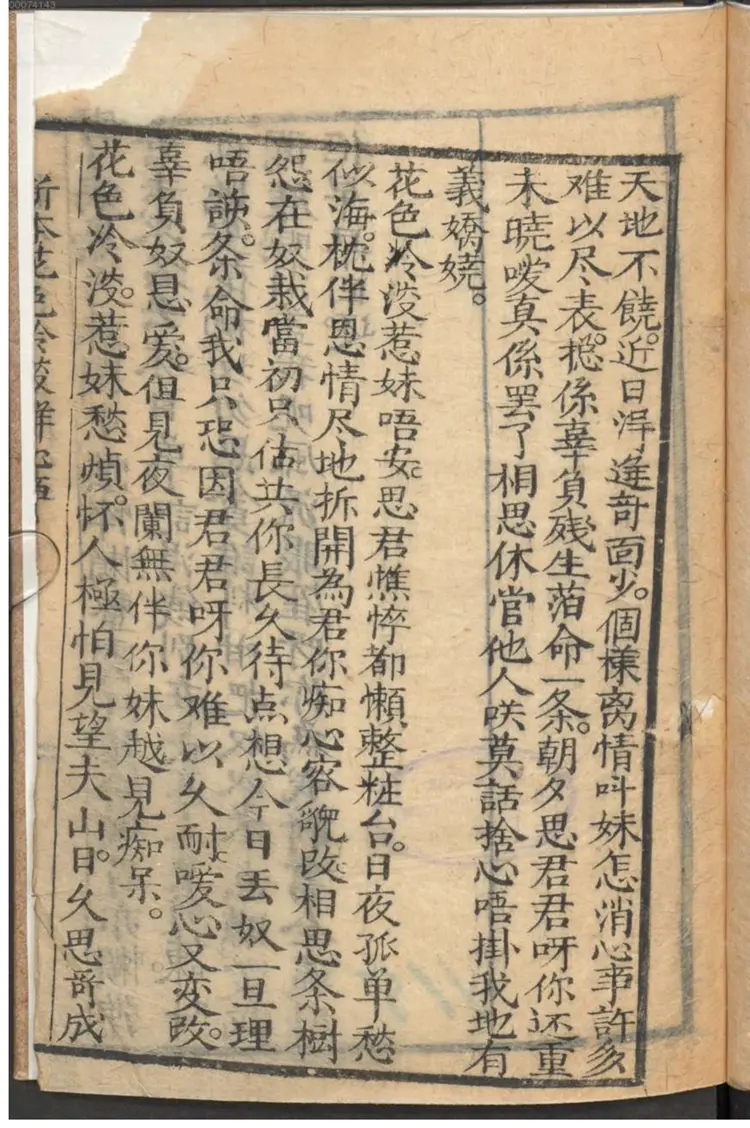 天地不饒。近日淂逢奇面少。個樣离情呌妹怎消心事許多
难以尽表。捴係辜負残生萡命一条。朝夕思君君呀你还重
未曉嗳真係罢了相思休官他人咲莫話捨心唔掛我地有
義嬌娆。
花色冷淡惹妹唔安。思君憔悴都懶整粧台。日夜孤单愁
似海。枕伴恩情尽地拆開為君你痴心容皃改。相思条樹
怨在奴栽當初只估共你長久待点想今日丢奴一旦理
唔訲。条命我只恐因君君呀你难以久耐嗳心又変改。
辜負奴恩爱。但見夜闌無伴你妹越見痴呆。
花色冷淡。惹妹愁煩。怀人極怕見望夫山。日久思哥成
新本花色冷淡解心
00074143